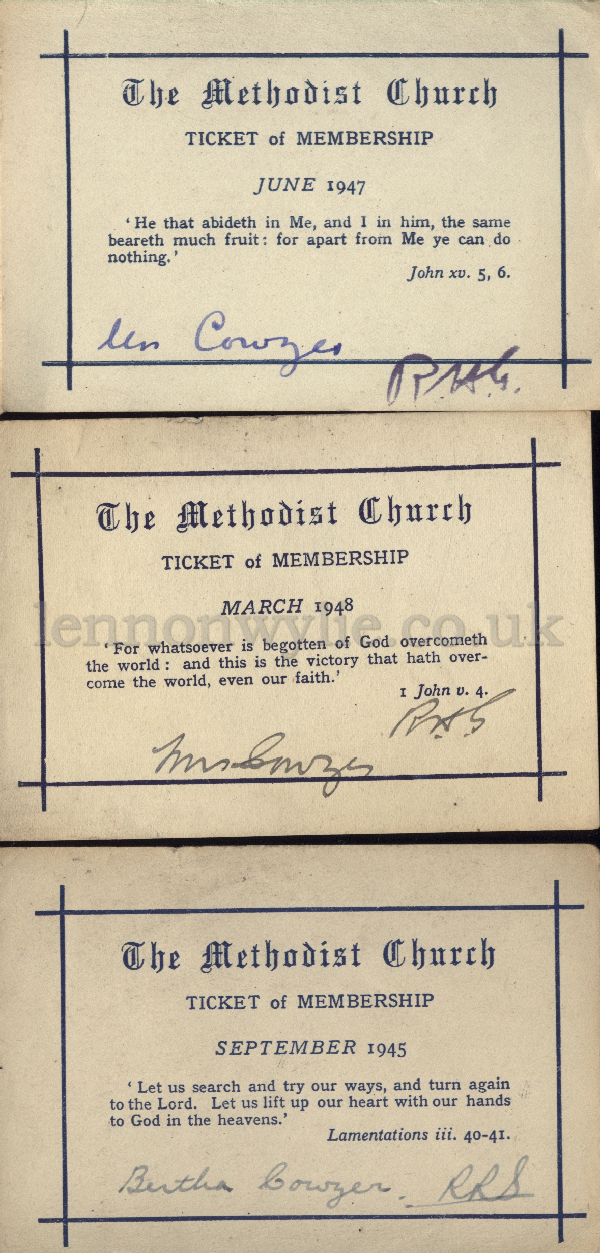 The Methodist Church
TICKET of MEMBERSHIP
JUNE 1947
‘ He that abideth in Me, and I in him, the same
beareth much fruit : for apart from Me ye can do
nothing.’
John xv. 5, 6.
Mrs Cowzer
R.H.G.
The Methodist Church
TICKET of MEMBERSHIP
MARCH 1948
lennonwylie.co.uk
‘ For whatsoever is begotten of God overcometh
the world : and this is the victory that hath over-
come the world, even our faith.’
1 John v. 4.
R.H.G
Mrs Cowzer
The Methodist Church
TICKET of MEMBERSHIP
SEPTEMBER 1945
‘ Let us search and try our ways, and turn again
to the Lord. Let us lift up our heart with our hands
to God in the heavens.’
Lamentations iii. 40-41.
Bertha Cowzer.